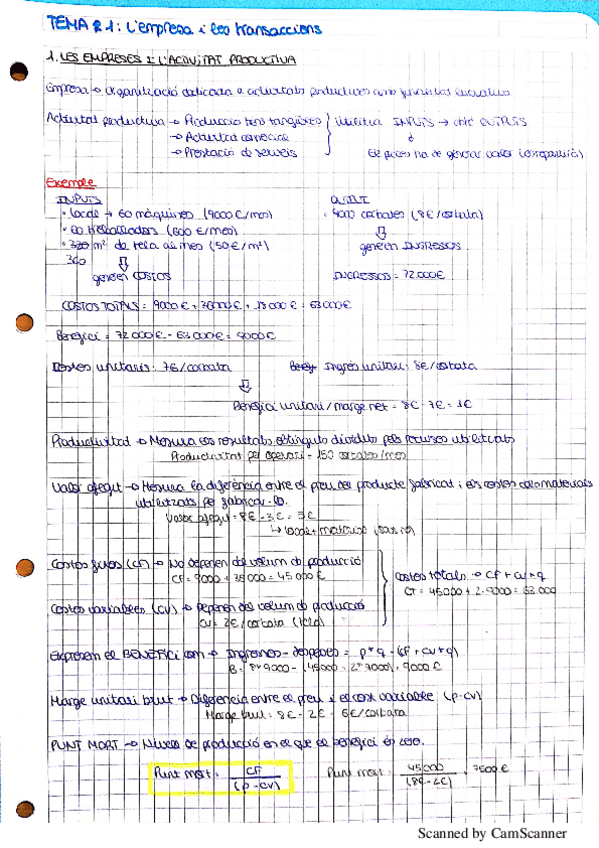 TEMA 2.1: L'empresa i les transaccions
1. LES EMPRESES I L'ACTIVITAT PRODUCTIVA
Empresa → Organització dedicada a activitats productives amb finalitats lucratives
Activitat productiva → Producció béns tangibles utilitza INPUTS → obté OUTPUTS
→ Activitat comercial
→ Prestació de serveis El procés ha de generar valor
Exemple
INPUTS OUTPUT
· local → 60 màquines (9000€/mes) · 9000 corbates (8€/corbata)
· 60 treballadors (600 €/mes) generen INGRESSOS
· 320 m² de tela al mes (50€/m²)
360
generen COSTOS INGRESSOS = 72.000€
COSTOS TOTALS = 9000€ + 36000€ + 18000€ = 63000€
Benefici = 72000€ - 63000€ = 9000€
Costos unitaris: 7€/corbata Ingrés unitari: 8€/corbata
Benefici unitari/marge net = 8€ - 7€ = 1€
Productivitat → Mesura els resultats obtinguts dividits pels recursos utilitzats
Productivitat per operari = 150 corbates/mes
Valor afegit → Mesura la diferència entre el preu del producte fabricat i els costos dels materials
utilitzats per fabricar-lo.
Valor afegit = 8€ - 3€ = 5€
Costos fixos (CF) → No depenen del volum de producció
CF = 9000 + 36000 = 45000 € Costos totals → CF + CV * q
CT = 45000 + 2·9000 = 63000
Costos variables (CV) → Depenen del volum de producció
CV = 2€/corbata (tela)
Expressem el BENEFICI com → Ingressos - despeses = p*q - (CF + CV*q)
B = 8*9000 - (45000 + 2*9000) = 9000€
Marge unitari brut → Diferència entre el preu i el cost variable (p-cv)
Marge brut = 8€ - 2€ = 6€/corbata
PUNT MORT → Nivell de producció en el que el benefici és zero.
Punt mort = CF / (p - cv) Punt mort = 45000 / (8€-2€) = 7500€
Scanned by CamScanner